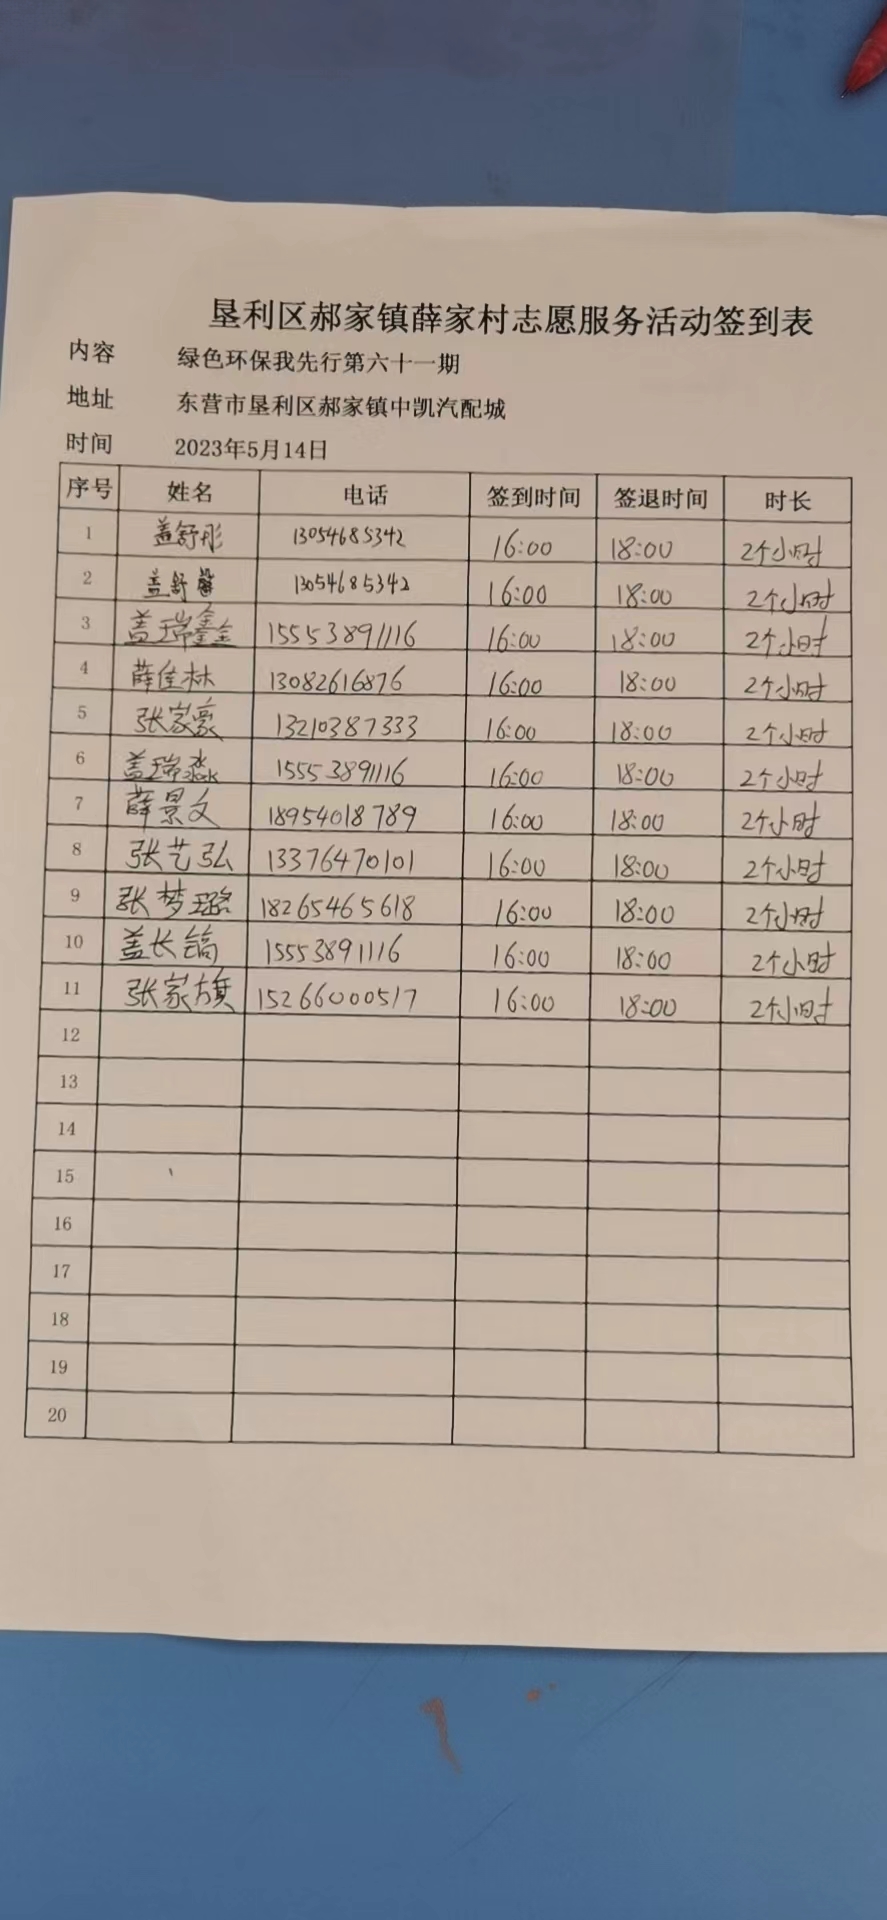 垦利区郝家镇薛家村志愿服务活动签到表
内容 绿色环保我先行第六十一期
地址 东营市垦利区郝家镇中凯汽配城
时间 2023年5月14日
序号 姓名 电话 签到时间 签退时间 时长
1 盖舒彤 13054685342 16:00 18:00 2个小时
2 盖舒馨 13054685342 16:00 18:00 2个小时
3 盖瑞鑫 15553891116 16:00 18:00 2个小时
4 薛佳林 13082616876 16:00 18:00 2个小时
5 张家豪 13210387333 16:00 18:00 2个小时
6 盖瑞淼 15553891116 16:00 18:00 2个小时
7 薛景文 18954018789 16:00 18:00 2个小时
8 张艺弘 13376470101 16:00 18:00 2个小时
9 张梦璐 18265465618 16:00 18:00 2个小时
10 盖长镐 15553891116 16:00 18:00 2个小时
11 张家旗 15266000517 16:00 18:00 2个小时
12
13
14
15
16
17
18
19
20